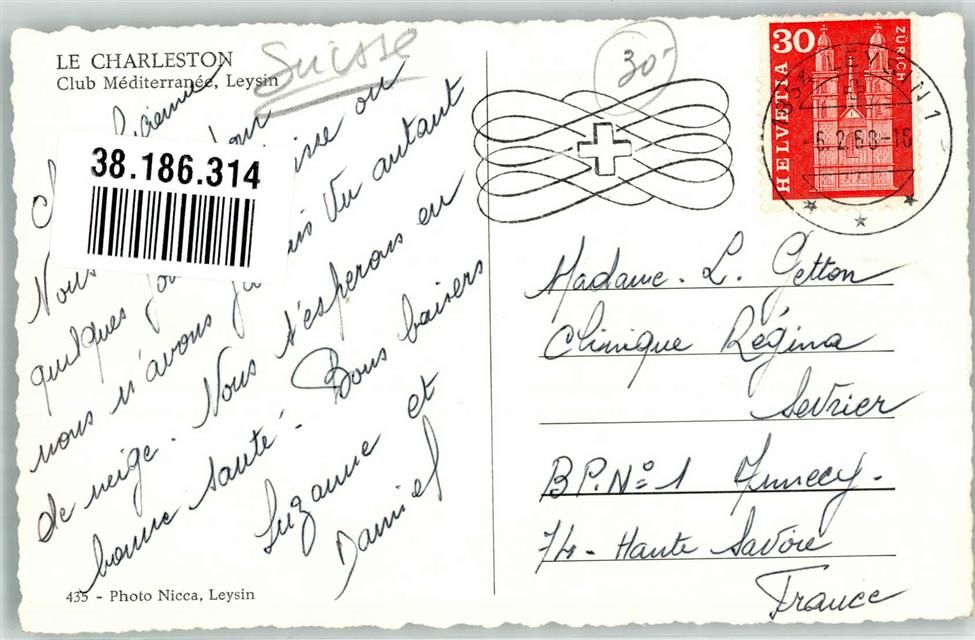 LE CHARLESTON
Club Méditerranée, Leysin
Suisse
38.186.314
Nous
quelques jours
nous n'avons jamais vu autant
de neige. Nous t'esperons en
bonne santé. Bons baisers
Suzanne et
Daniel
435 - Photo Nicca, Leysin
30.-
30
HELVETIA
ZÜRICH
LEYSIN 1
-6.2.68-18
Madame. L. Getton
Clinique Régina
Sevrier
B.P. N° 1 Annecy.
74 - Haute Savoie
France